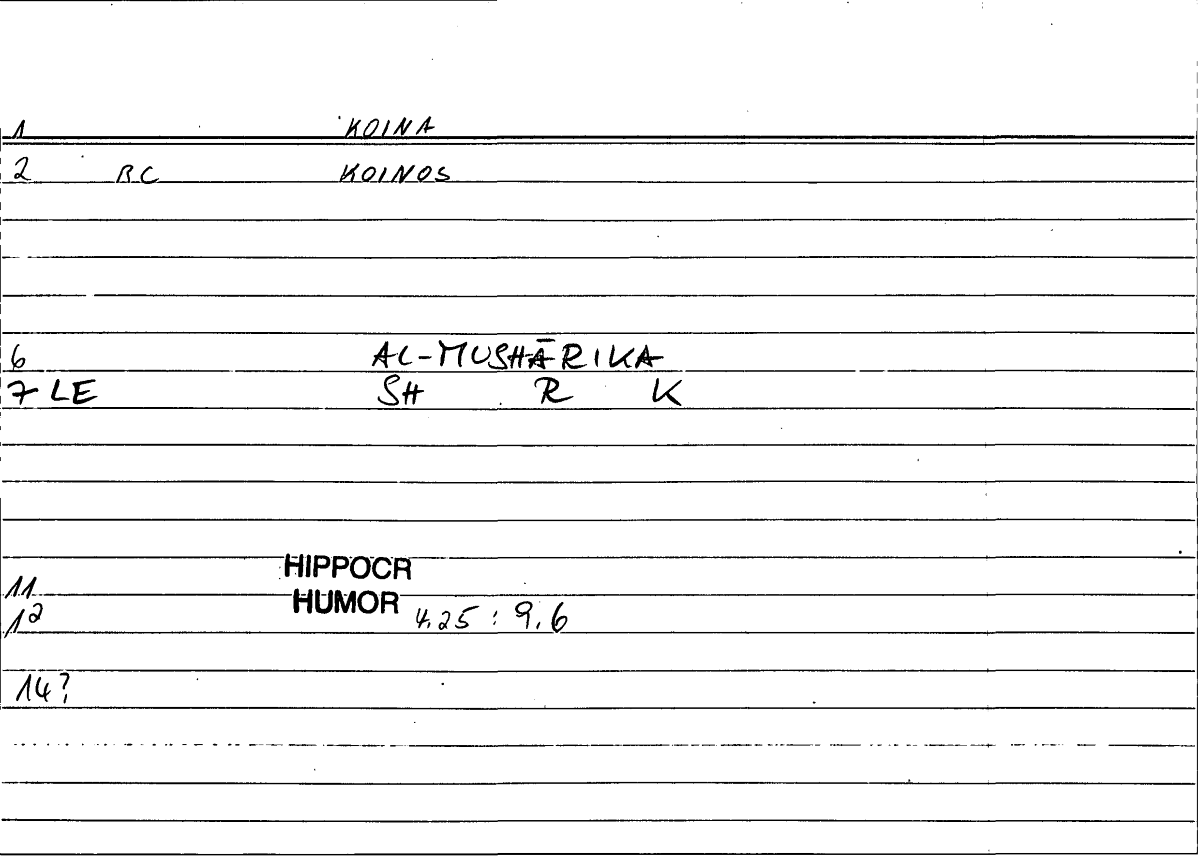 1 KOINA
2 BC KOINOS
6 AL-MUSHĀRIKA
7 LE SH R K
11 HIPPOCR
12 HUMOR 4.25 : 9.6
14?